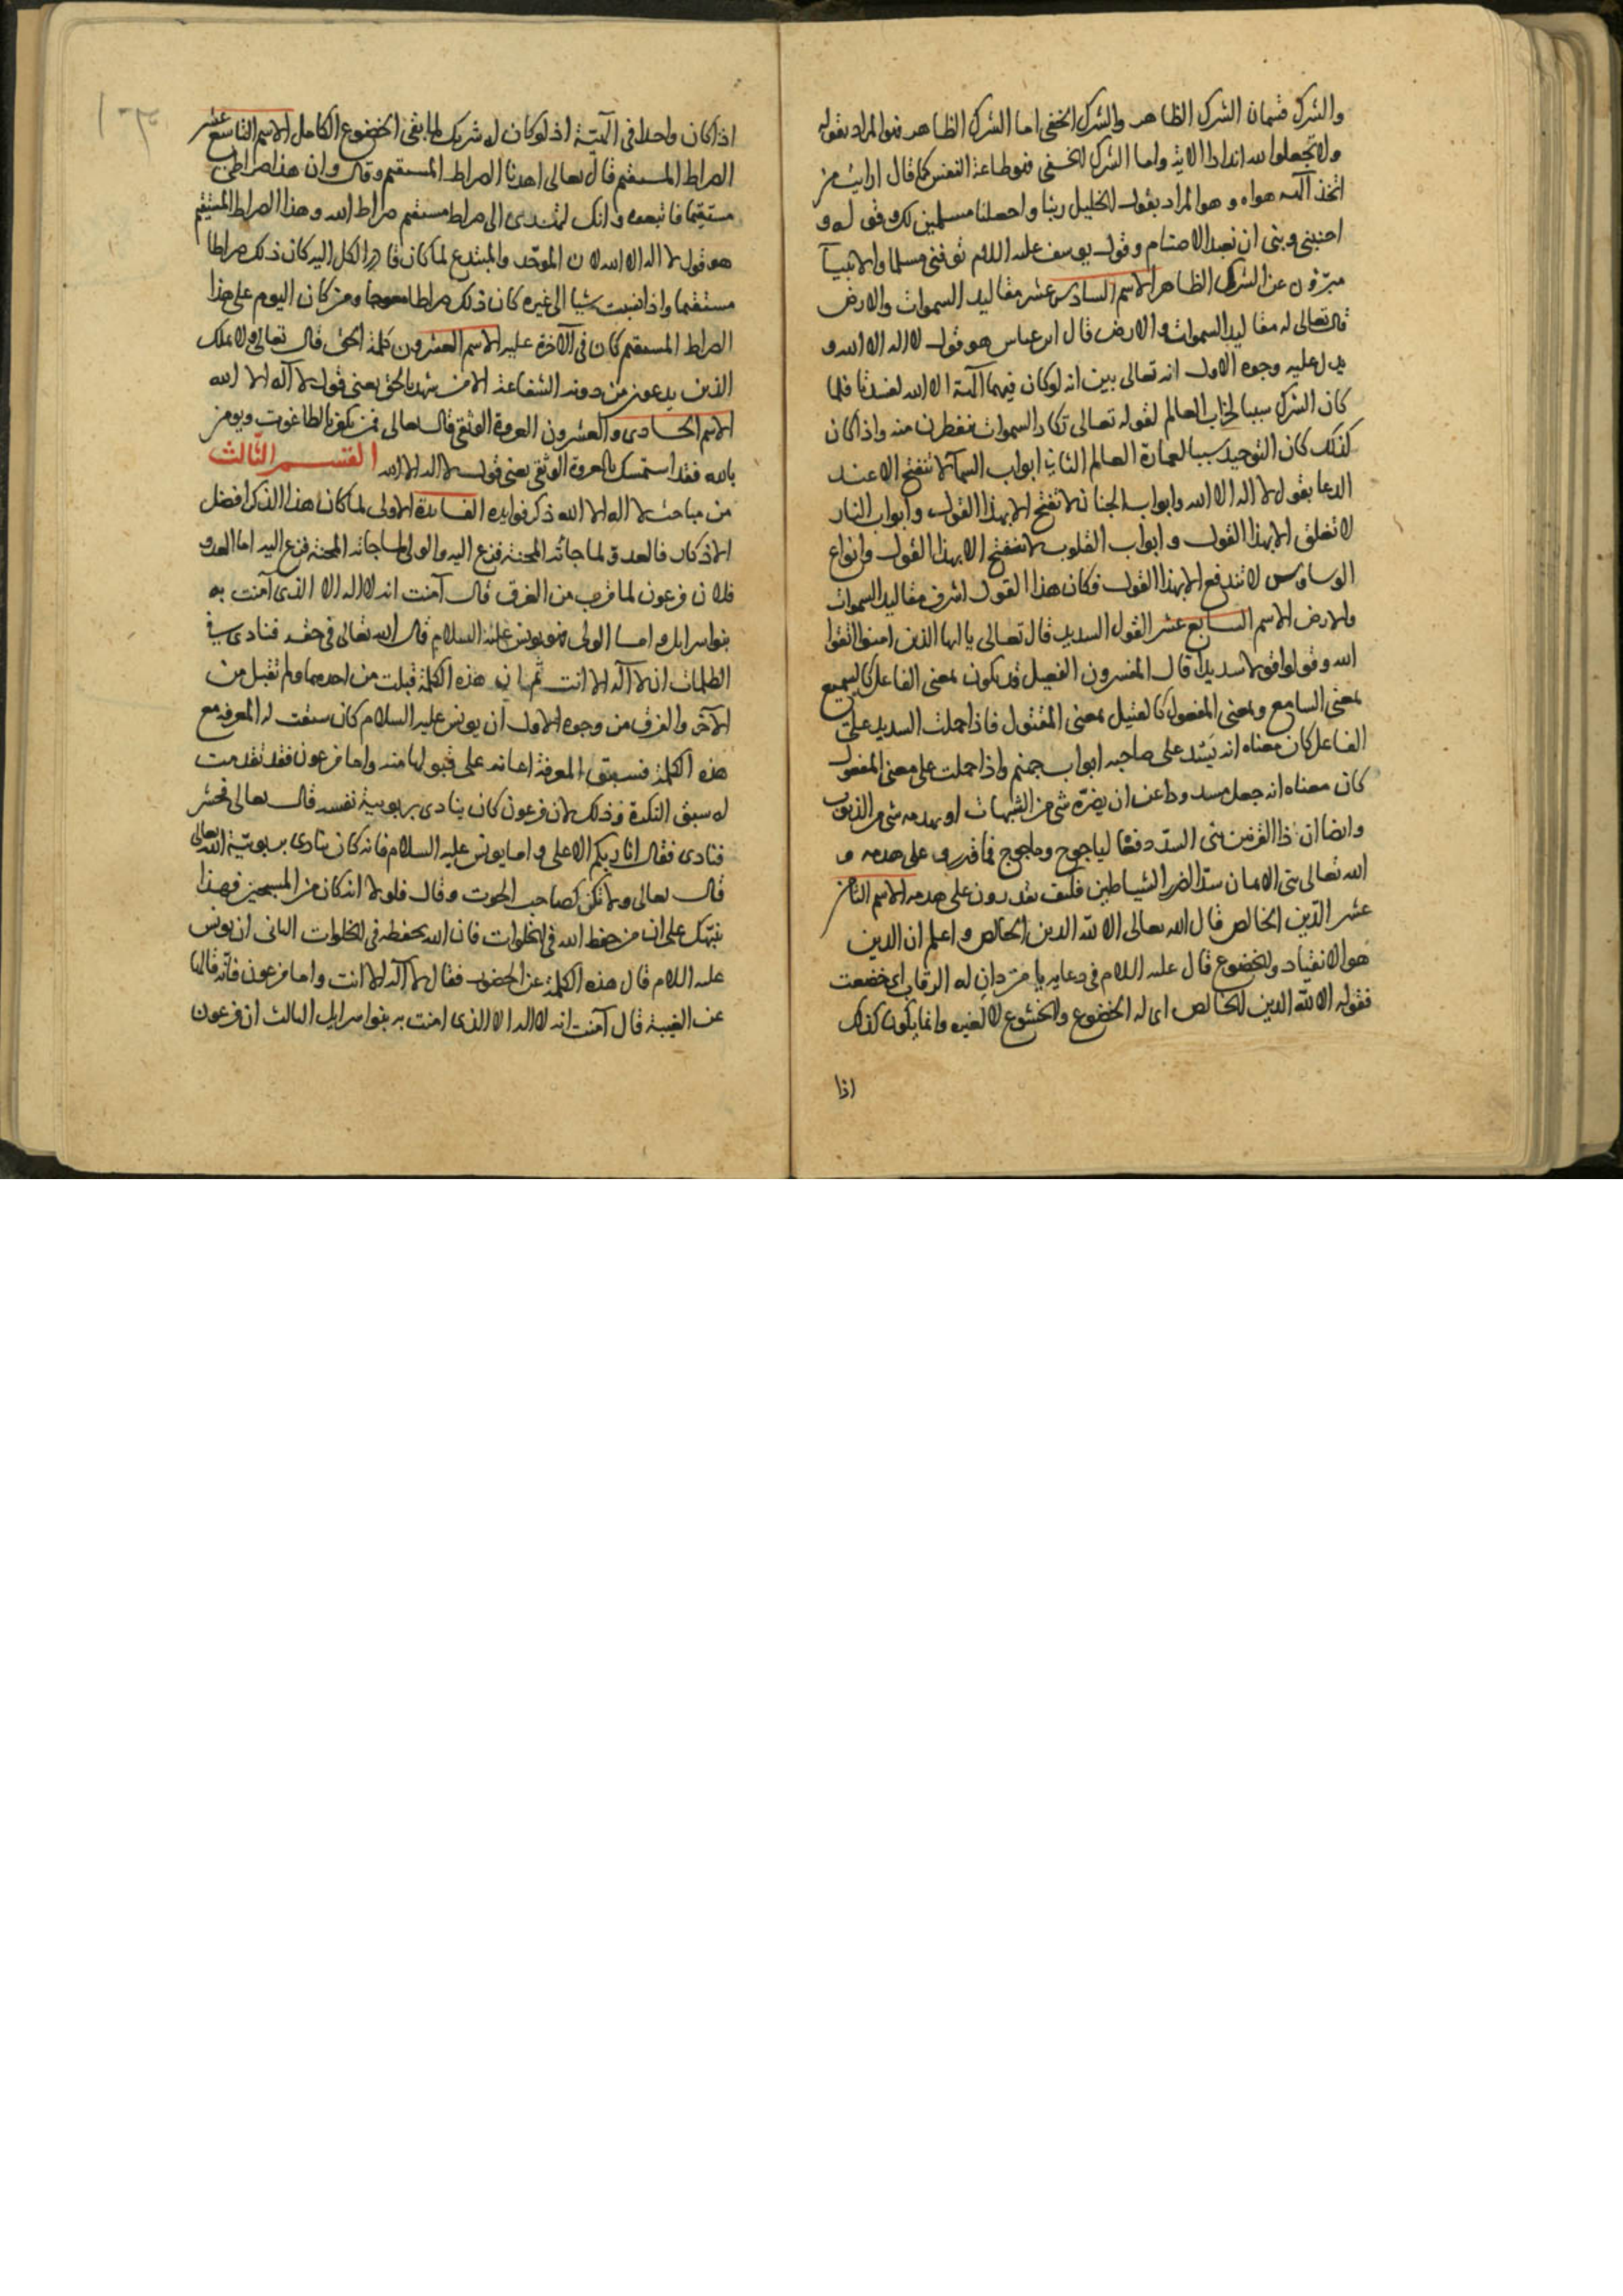 والشرك قسمان الشرك الظاهر والشرك الخفى اما الشرك الظاهر فهو المراد بقوله
ولا تجعلوا لله اندادا الاية واما الشرك الخفى فهو طاعة النفس كما قال ارايت من
اتخذ آلهه هواه وهو المراد بقول الخليل ربنا واجعلنا مسلمين لك وقوله و
اجنبنى وبنى ان نعبد الاصنام وقول يوسف عليه السلام توفنى مسلما والانبيآ
مبرّؤن عن الشرك الظاهر الاسم السادس عشر مقاليد السموات والارض
قال تعالى له مقاليد السموات والارض قال ابن عباس هو قول لا اله الا الله و
يدل عليه وجوه الاول انه تعالى بين انه لو كان فيهما آلهة الا الله لفسدتا فلما
كان الشرك سببا لخراب العالم لقوله تعالى تكاد السموات يتفطرن منه واذا كان
كذلك كان التوحيد سببا لعمارة العالم الثانى ابواب السمآ لا تنفتح الا عند
الدعا بقول لا اله الا الله وابواب الجنان لا تفتح الا بهذا القول وابواب النار
لا تغلق الا بهذا القول وابواب القلوب لا تنفتح الا بهذا القول وانواع
الوساوس لا تندفع الا بهذا القول فكان هذا القول اشرف مقاليد السموات
والارض الاسم السابع عشر القول السديد قال تعالى يا ايها الذين امنوا اتقوا
الله وقولوا قولا سديدا قال المفسرون الفعيل قد يكون بمعنى الفاعل كالسميع
بمعنى السامع وبمعنى المفعول كالقتيل بمعنى المقتول فاذا حملت السديد على
الفاعل كان معناه انه يَسُد على صاحبه ابواب جهنم واذا حملت على معنى المفعول
كان معناه انه جعل مسدودا عن ان يضرّه شى من الشبهات او يهدمه شى من الذنوب
وايضا ان ذا القرنين بنى السدّ دفعًا لياجوج وماجوج فما قدروا على هدمه و
الله تعالى بنى الايمان سدّا لضرر الشياطين فكيف يقدرون على هدمه الاسم الثامن
عشر الدّين الخالص قال الله تعالى الا لله الدين الخالص واعلم ان الدين
هو الانقياد والخضوع قال عليه السلام فى دعايه يا من دان له الرقاب اى خضعت
فقوله الا لله الدين الخالص اى له الخضوع والخشوع لا لغيره وانما يكون كذلك
اذا
اذا كان واحدا فى آلهيّة اذ لو كان له شريك لما بقى الخضوع الكامل الاسم التاسع عشر
الصراط المستقيم قال تعالى اهدنا الصراط المستقيم وقال وان هذا صراطى
مستقيما فاتبعوه وانك لتهدى الى صراط مستقيم صراط الله وهذا الصراط المستقيم
هو قول لا اله الا الله لان الموحّد والمبتدع لما كان الكل اليه كان ذلك صراطا
مستقيما واذا نسبت شيا الى غيره كان ذلك صراطا معوجا ومن كان اليوم على هذا
الصراط المستقيم كان فى الآخرة عليه الاسم العشرون كلمة الحق قال تعالى ولا يملك
الذين يدعون من دونه الشفاعة الا من شهد بالحق يعنى قول لا آله الا الله
الاسم الحادى والعشرون العروة الوثقى قال تعالى فمن يكفر بالطاغوت ويومن
بالله فقد استمسك بالعروة الوثقى يعنى قول لا اله الا الله القسم الثّالث
من مباحث لا اله الا الله ذكر فوايده الفايدة الاولى لما كان هذا الذكر افضل
الاذكار فالعدو لما جائه المحنة فزع اليه والولى لما جائه المحنة فزع اليه اما العدو
فلان فرعون لما قرب من الغرق قال آمنت انه لا اله الا الذى آمنت به
بنوا سرايل واما الولى فهو يونس عليه السلام قال الله تعالى فى حقه فنادى فى
الظلمات ان لا آله الا انت ثم ان هذه الكلمة قبلت من احدهما ولم تقبل من
الآخر والفرق من وجوه الاول ان يونس عليه السلام كان سبقت له المعرفه مع
هذه الكلمة فسبق المعرفة اعانه على قبولها منه واما فرعون فقد تقدمت
له سبق النكرة وذلك لان فرعون كان ينادى بربوبية نفسه قال تعالى فحشر
فنادى فقال انا ربكم الاعلى واما يونس عليه السلام فانه كان ينادى بربوبيّة الله تعالى
قال تعالى ولا تكن كصاحب الحوت وقال فلولا انه كان من المسبحين فهذا
ينبّهك على ان من حفظ الله فى الخلوات فان الله يحفظه فى الخلوات الثانى ان يونس
عليه السلام قال هذه الكلمة عن الحضور فقال لا آله الا انت واما فرعون فانّه قالها
عن الغيبة قال آمنت انه لا اله الا الذى امنت به بنوا سرايل الثالث ان فرعون